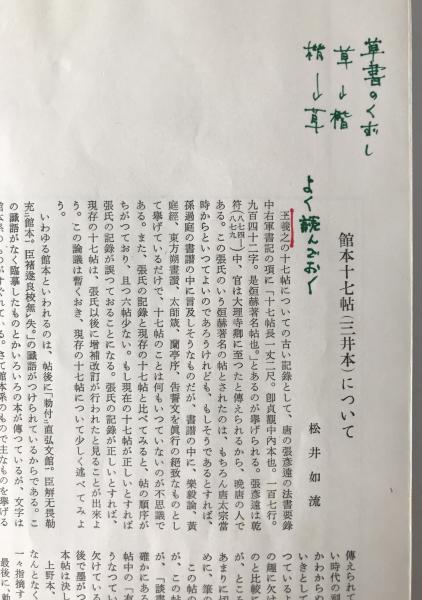 草書のくずし
草→楷
楷→草
よく読んでおく
館本十七帖(三井本)について
松井如流
王羲之の十七帖についての古い記録として、唐の張彦遠の法書要錄
中右軍書記の項に「十七帖長一丈二尺。卽貞觀中內本也。一百七行。
九百四十二字。是烜赫著名帖也。」とあるのが擧げられる。張彦遠は乾
符(八七四—八七九)中、官は大理寺卿に至つたと傳えられるから、晩唐の人で
ある。この張氏のいう烜赫著名の帖とされたのは、もちろん唐太宗當
時からといつてよいのであろうけれども、もしそうであるとすれば、
孫過庭の書譜の中に言及しそうなものだが、書譜の中に、樂毅論、黃
庭經、東方朔畫讃、太師箴、蘭亭序、告誓文を眞行の絕致なものとし
て擧げているだけで、十七帖のことは何もいつていないのが不思議で
ある。また、張氏の記錄と現存の十七帖と比べてみると、帖の順序が
ちがつており、且つ六帖少ない。もし現存の十七帖が正しいとすれば
張氏の記錄が誤つておることになる。張氏の記錄が正しいとすれば、
現存の十七帖は、張氏以後に增補改訂が行われたと見ることが出來よ
う。この論議は暫くおき、現存の十七帖について少しく述べてみよ
う。
いわゆる館本といわれるのは、帖後に「勅付二直弘文館一。臣解无畏勒
充二館本一。臣褚遂良校無レ失。」の識語がつけられているからである。こ
の識語がなく臨摹したものとかいろいろの本が傳つているが、文字は
館本系のものがすぐれている。さて館本系のもので主なものを擧げる
傳えられて
い時代の
かわからぬ
いきとして
つていると
の趣に欠け
のと比較し
が、ところ
あまりに切
めに、筆の
この帖の
が、この帖
が、「談書
確かにある
帖中の「有
うなつてい
欠けている
後で墨がつ
本帖は決し
上野本、
なんとなく
一々指摘す
最後に、勅